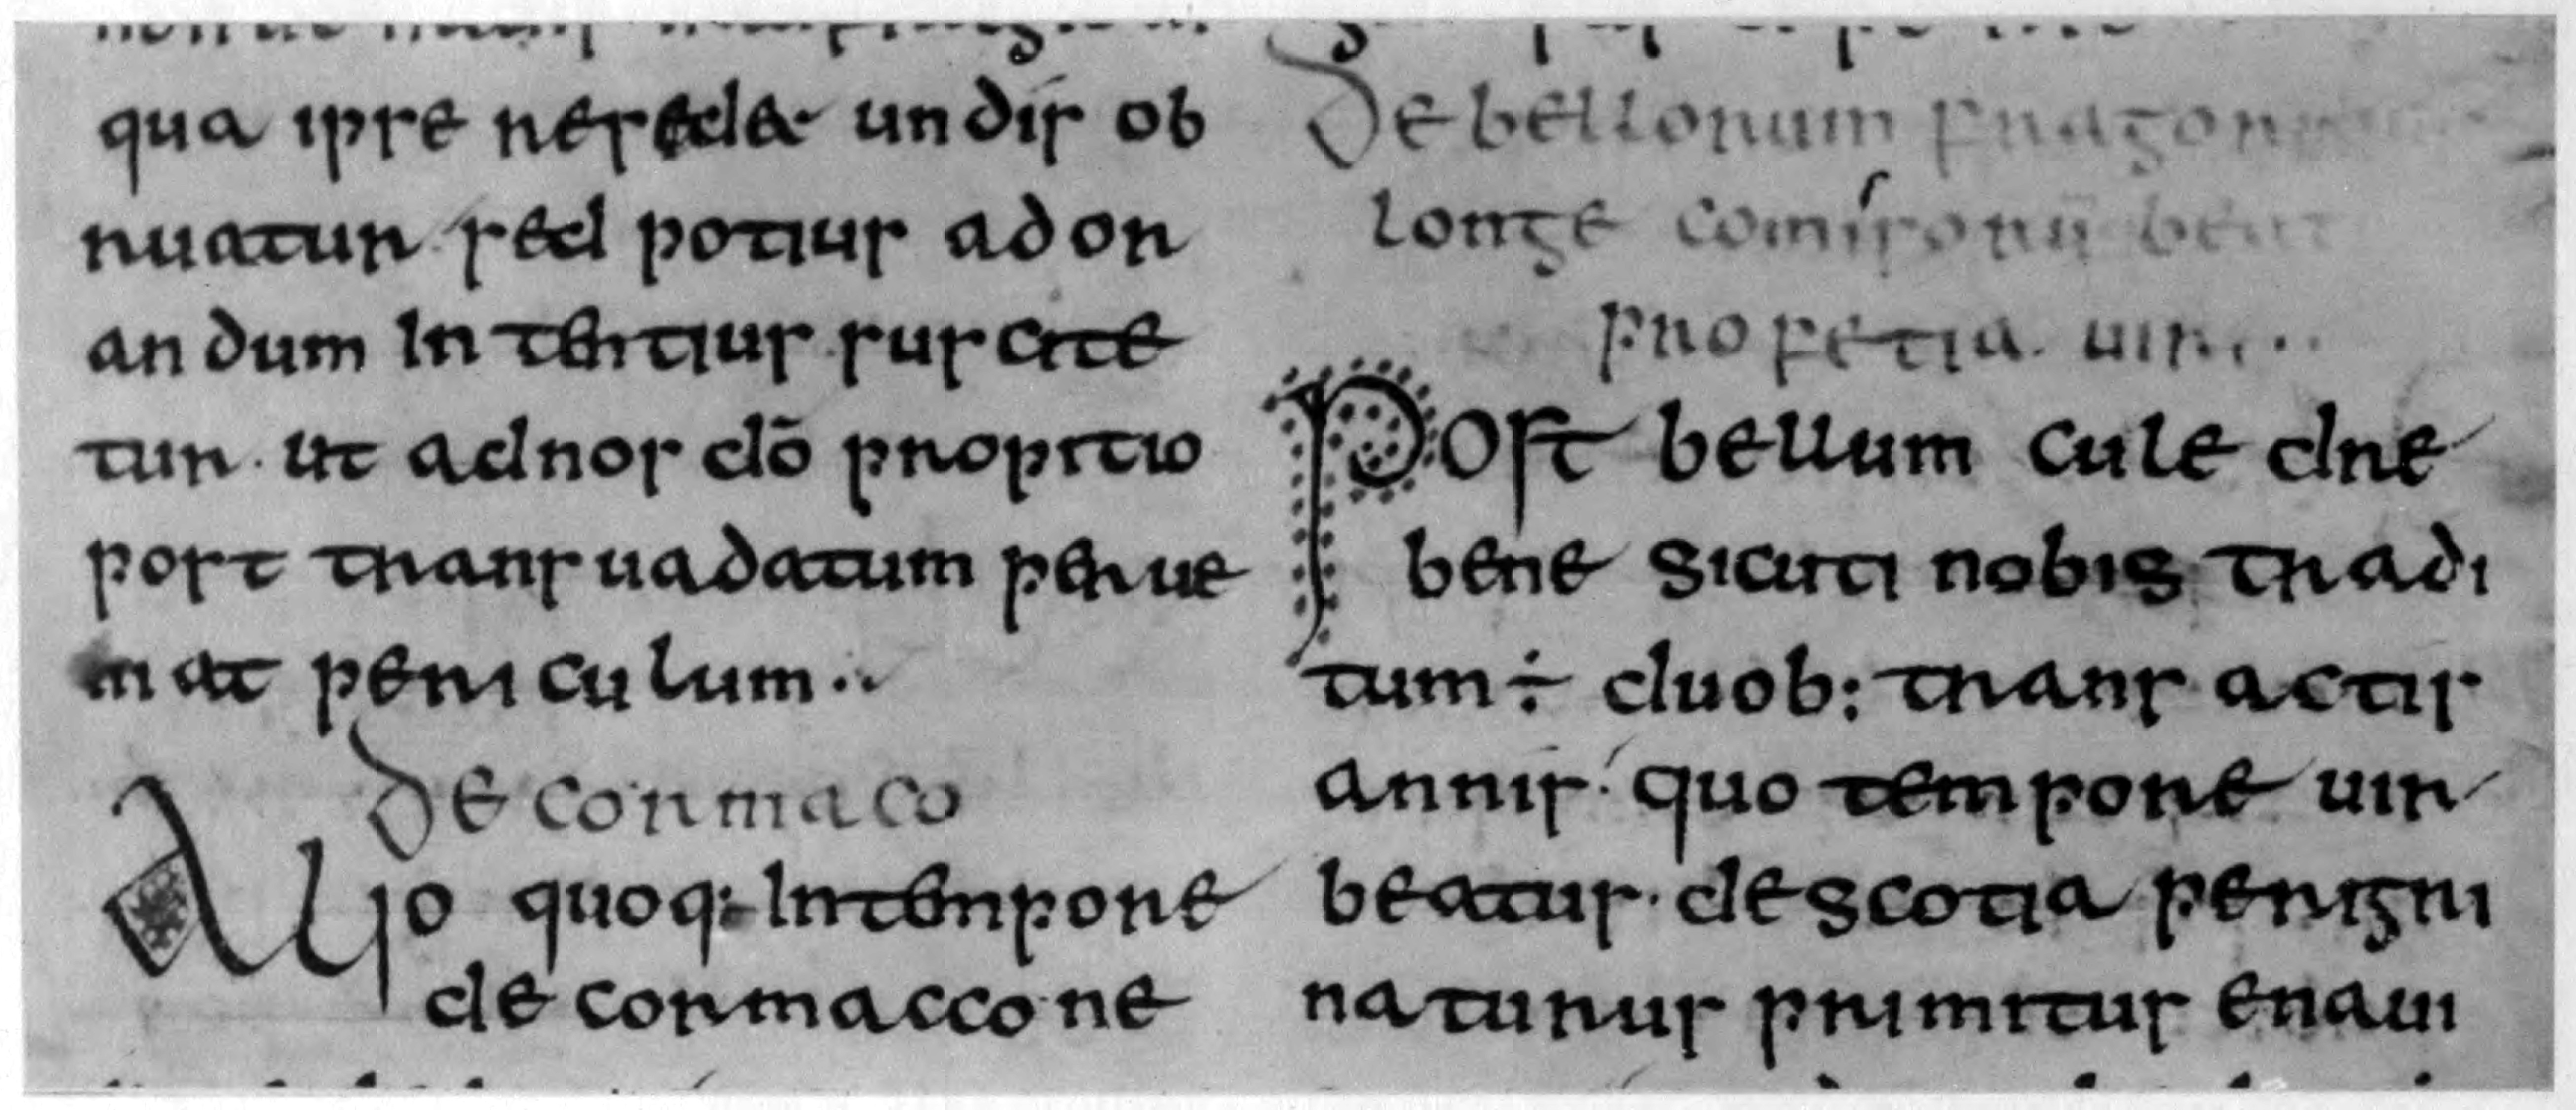 qua ipse resed& undis ob
ruatur sed potius ad or
andum intentius suscite
tur · ut ad nos dō propitio
post trans uadatum perue
niat periculum ··,
De cormaco
Alio quoq: in tempore
de cormacco ne
De bellorum fragori
longe comissorum beati
profetia uiri ···
Post bellum cule dre
bene sicuti nobis tradi
tum ÷ duob: trans actis
annis · quo tempore uir
beatus · de scotia perigri
naturus primitus enaui